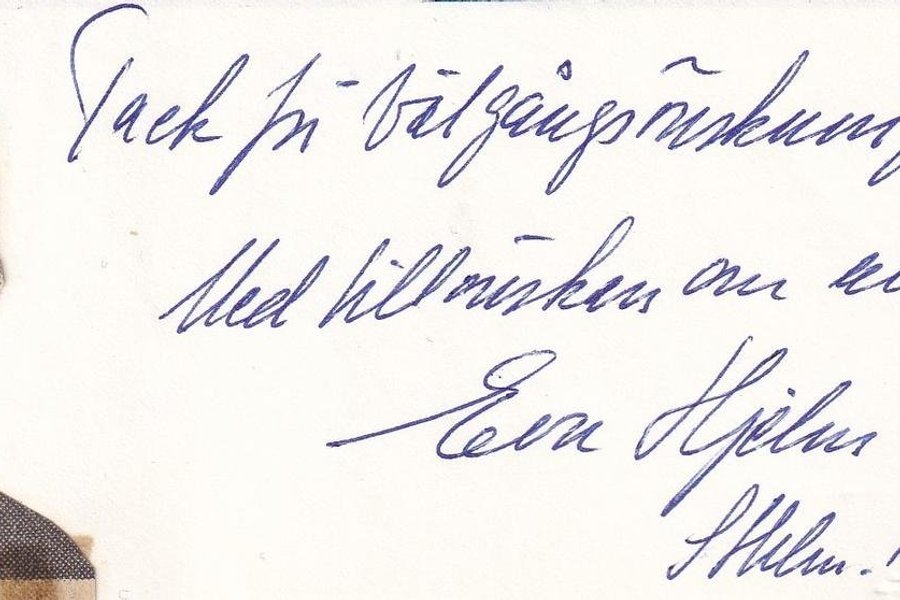 Tack för välgångsönskning
Med tillönskan om
Eva Hjelm
Sthlm.